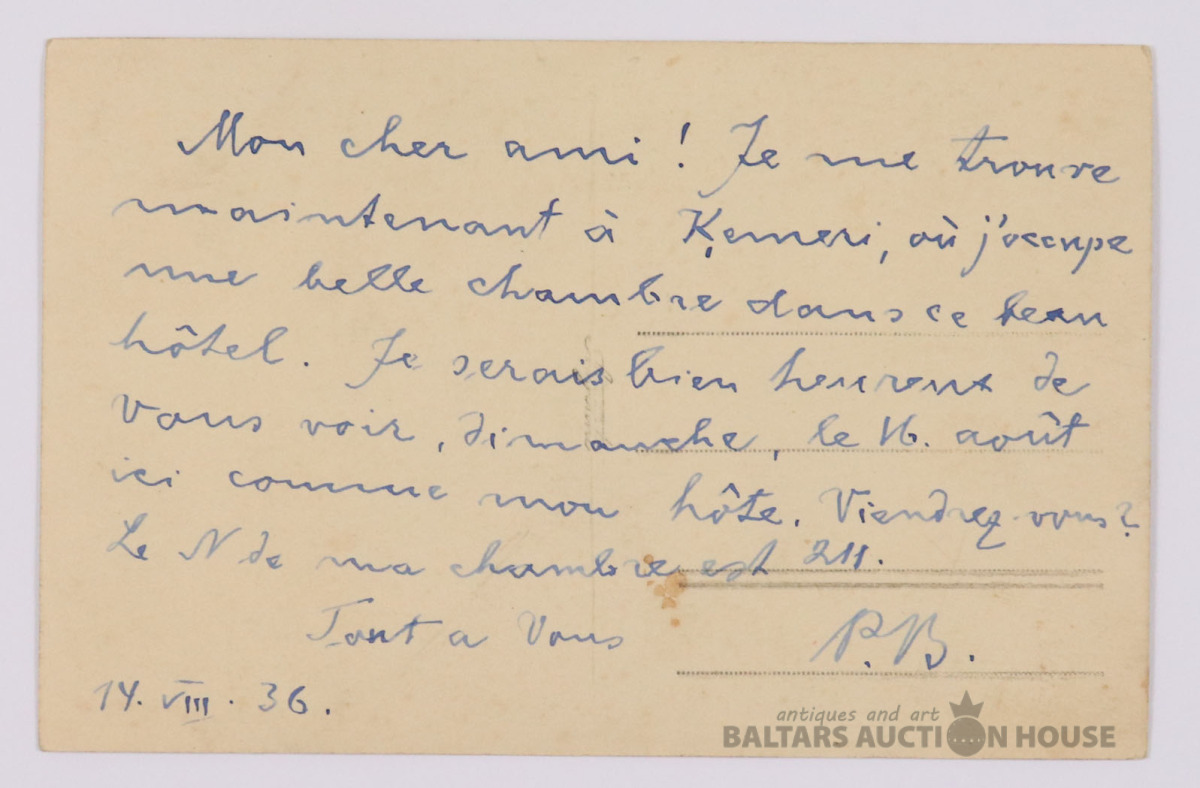 Mon cher ami ! Je me trouve
maintenant à Ķemeri, où j'occupe
une belle chambre dans ce beau
hôtel. Je serais bien heureux de
vous voir, dimanche, le 16. août
ici comme mon hôte. Viendrez-vous?
Le N de ma chambre est 211.
Tout a Vous
P.B.
14. VIII. 36.
antiques and art
BALTARS AUCTION HOUSE